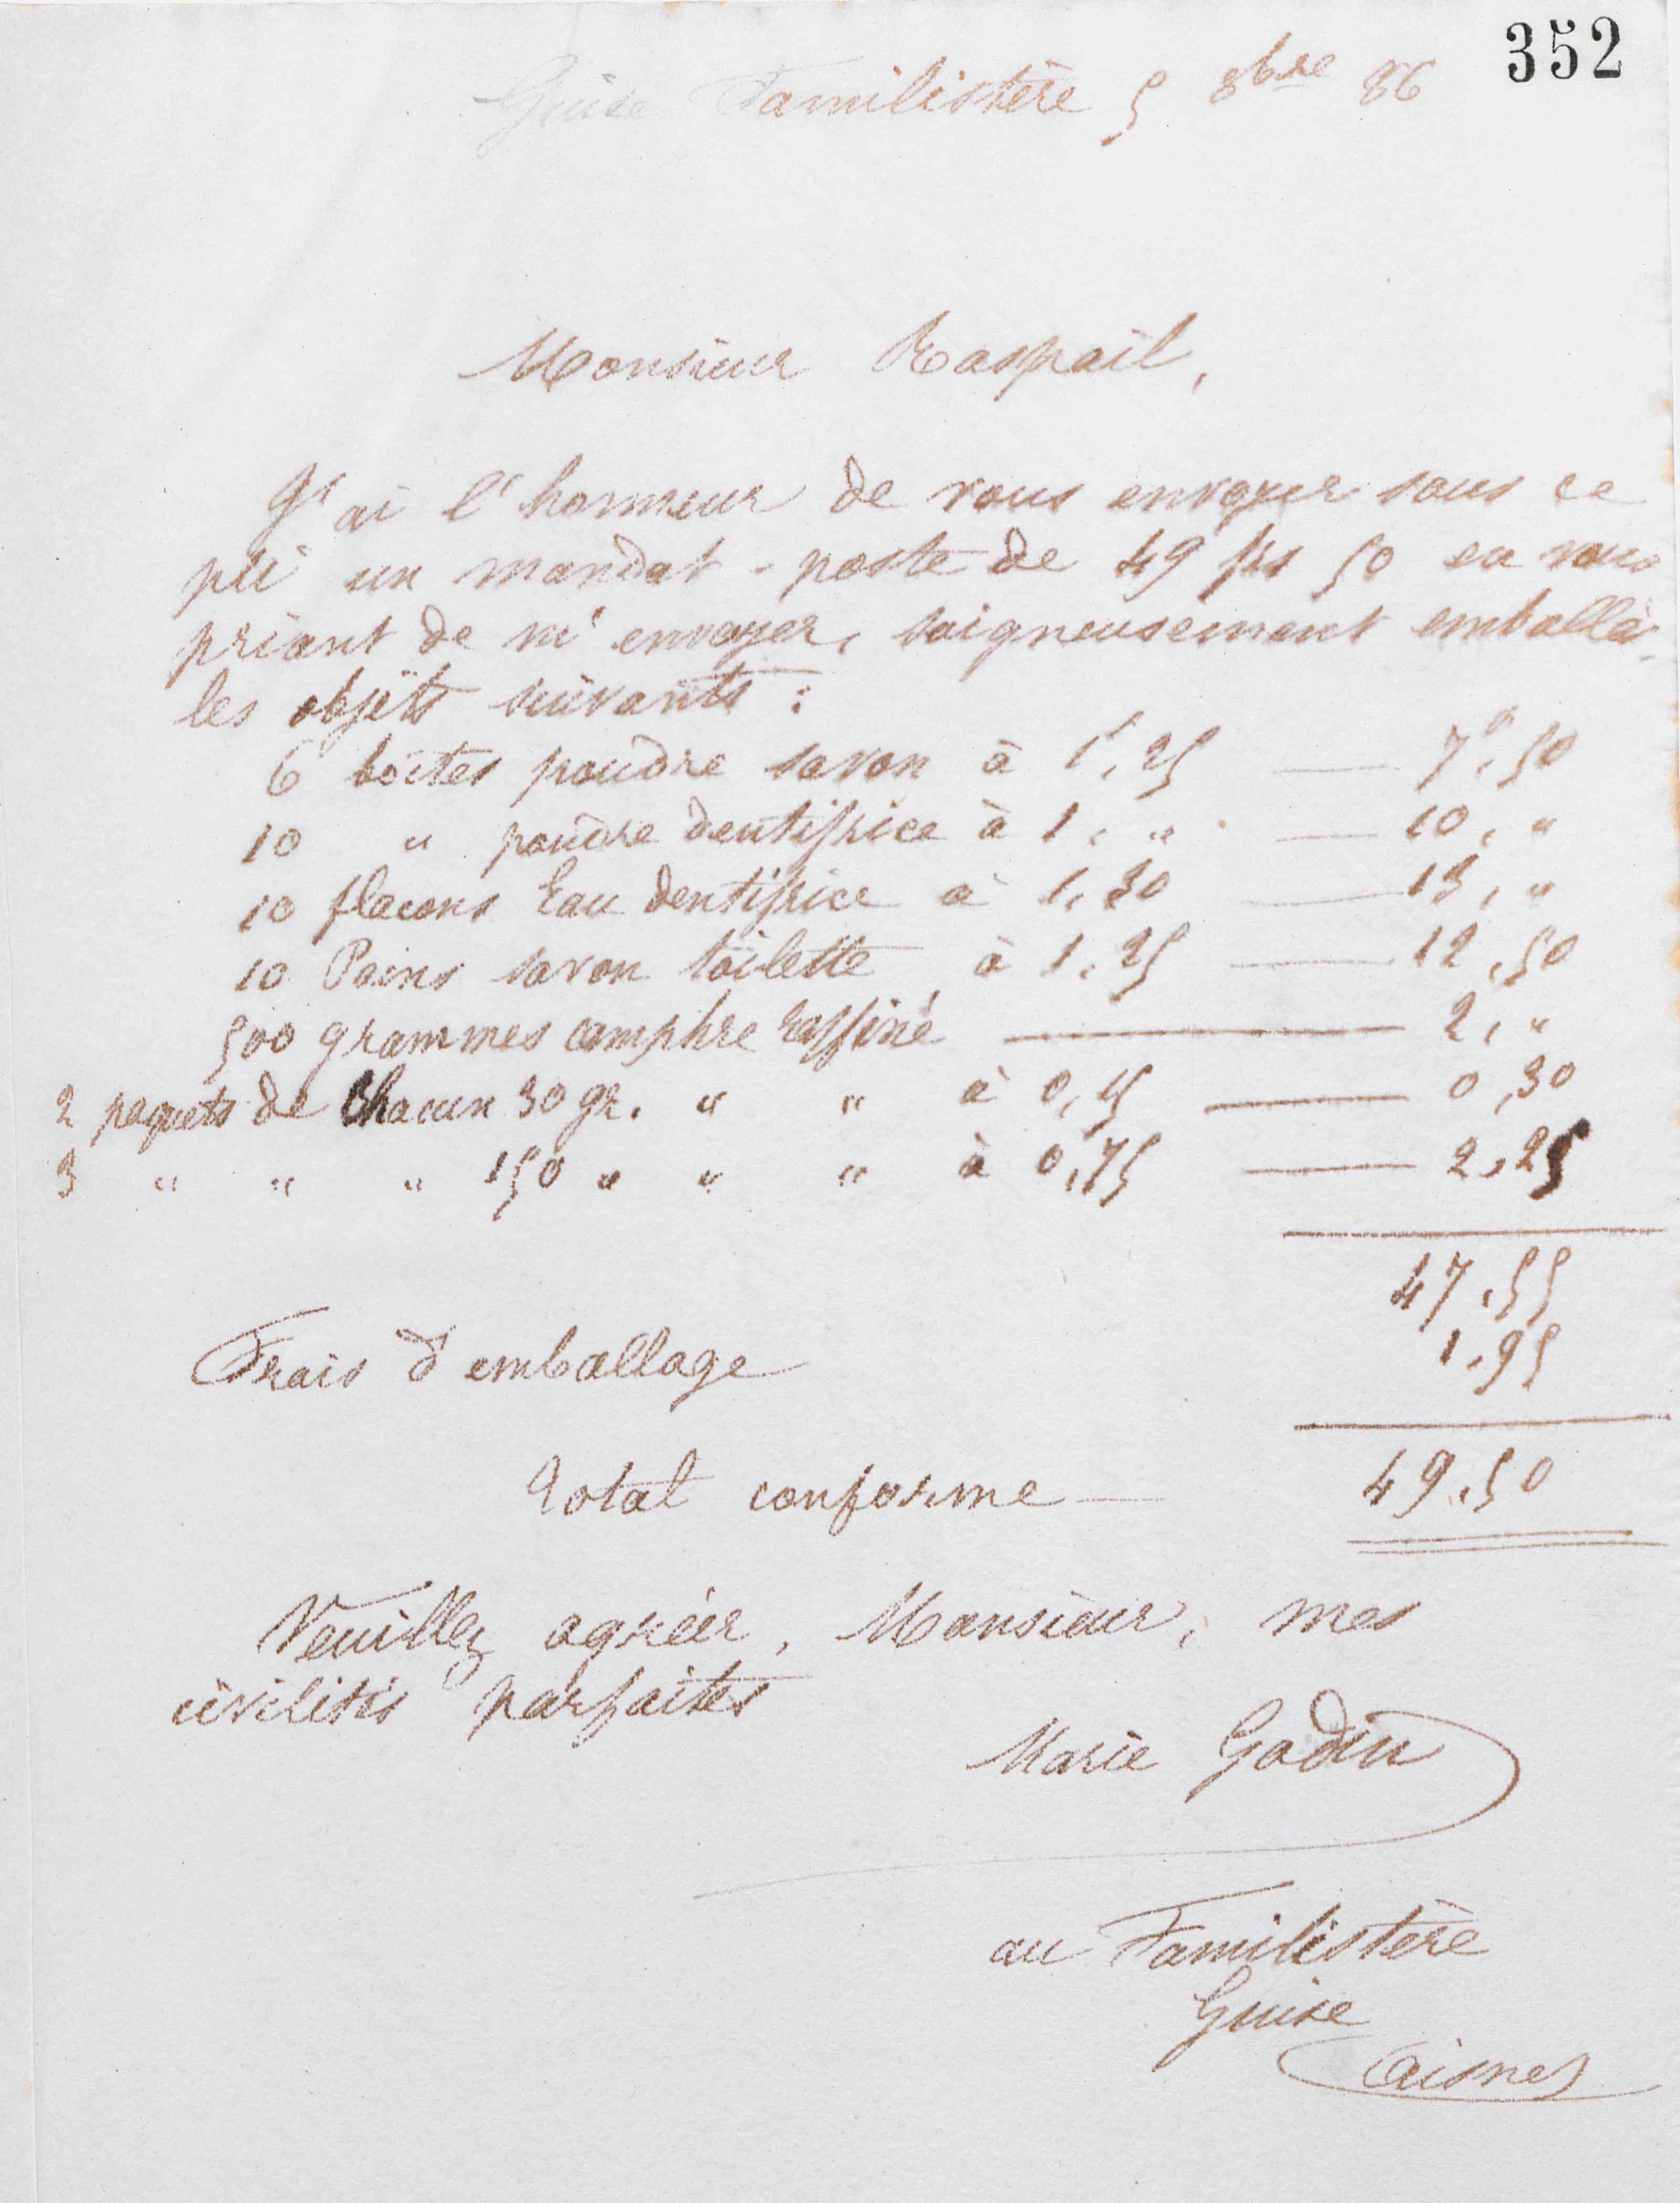 352
Guise Familistère 5 8bre 86
Monsieur Raspail,
J'ai l'honneur de vous envoyer sous ce
pli un mandat-poste de 49 frs 50 en vous
priant de m'envoyer, soigneusement emballés,
les objets suivants :
6 boîtes poudre savon à 1f,25 — 7f,50
10 " poudre dentifrice à 1, " — 10, "
10 flacons Eau dentifrice à 1,30 — 13, "
10 Pains savon toilette à 1,25 — 12,50
500 grammes camphre raffiné — 2, "
2 paquets de chacun 30 gr. " " à 0,15 — 0,30
3 " " " 150 " " " à 0,75 — 2,25
47,55
Frais d'emballage 1,95
Total conforme — 49,50
Veuillez agréer, Monsieur, mes
civilités parfaites
Marie Godin
au Familistère
Guise
Aisne